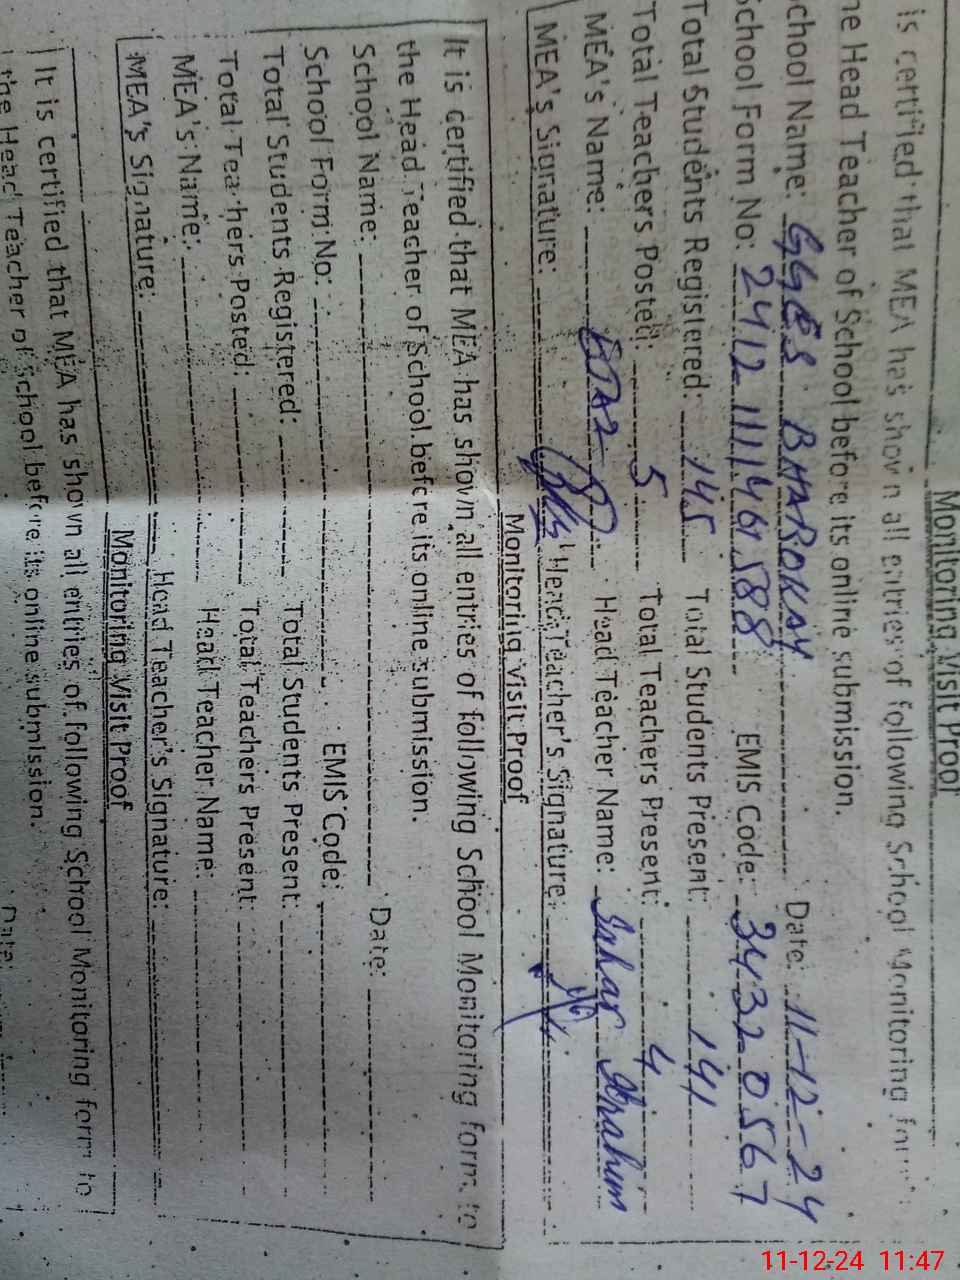 Monitoring Visit Proof
is certified that MEA has shown all entries of following School Monitoring for
he Head Teacher of School before its online submission.
chool Name: GGES BHAROKAY Date: 11-12-24
chool Form No: 2412 111461588 EMIS Code: 34320567
Total Students Registered: 145 Total Students Present: 141
Total Teachers Posted: 5 Total Teachers Present: 4
MEA's Name: Head Teacher Name: Sahar Ibrahim
MEA's Signature: Head Teacher's Signature:
Monitoring Visit Proof
It is certified that MEA has shown all entries of following School Monitoring form to
the Head Teacher of School before its online submission.
School Name: Date:
School Form No: EMIS Code:
Total Students Registered: Total Students Present:
Total Teachers Posted: Total Teachers Present:
MEA's Name: Head Teacher Name:
MEA's Signature: Head Teacher's Signature:
Monitoring Visit Proof
It is certified that MEA has shown all entries of following School Monitoring form to
the Head Teacher of School before its online submission.
Date:
11-12-24 11:47